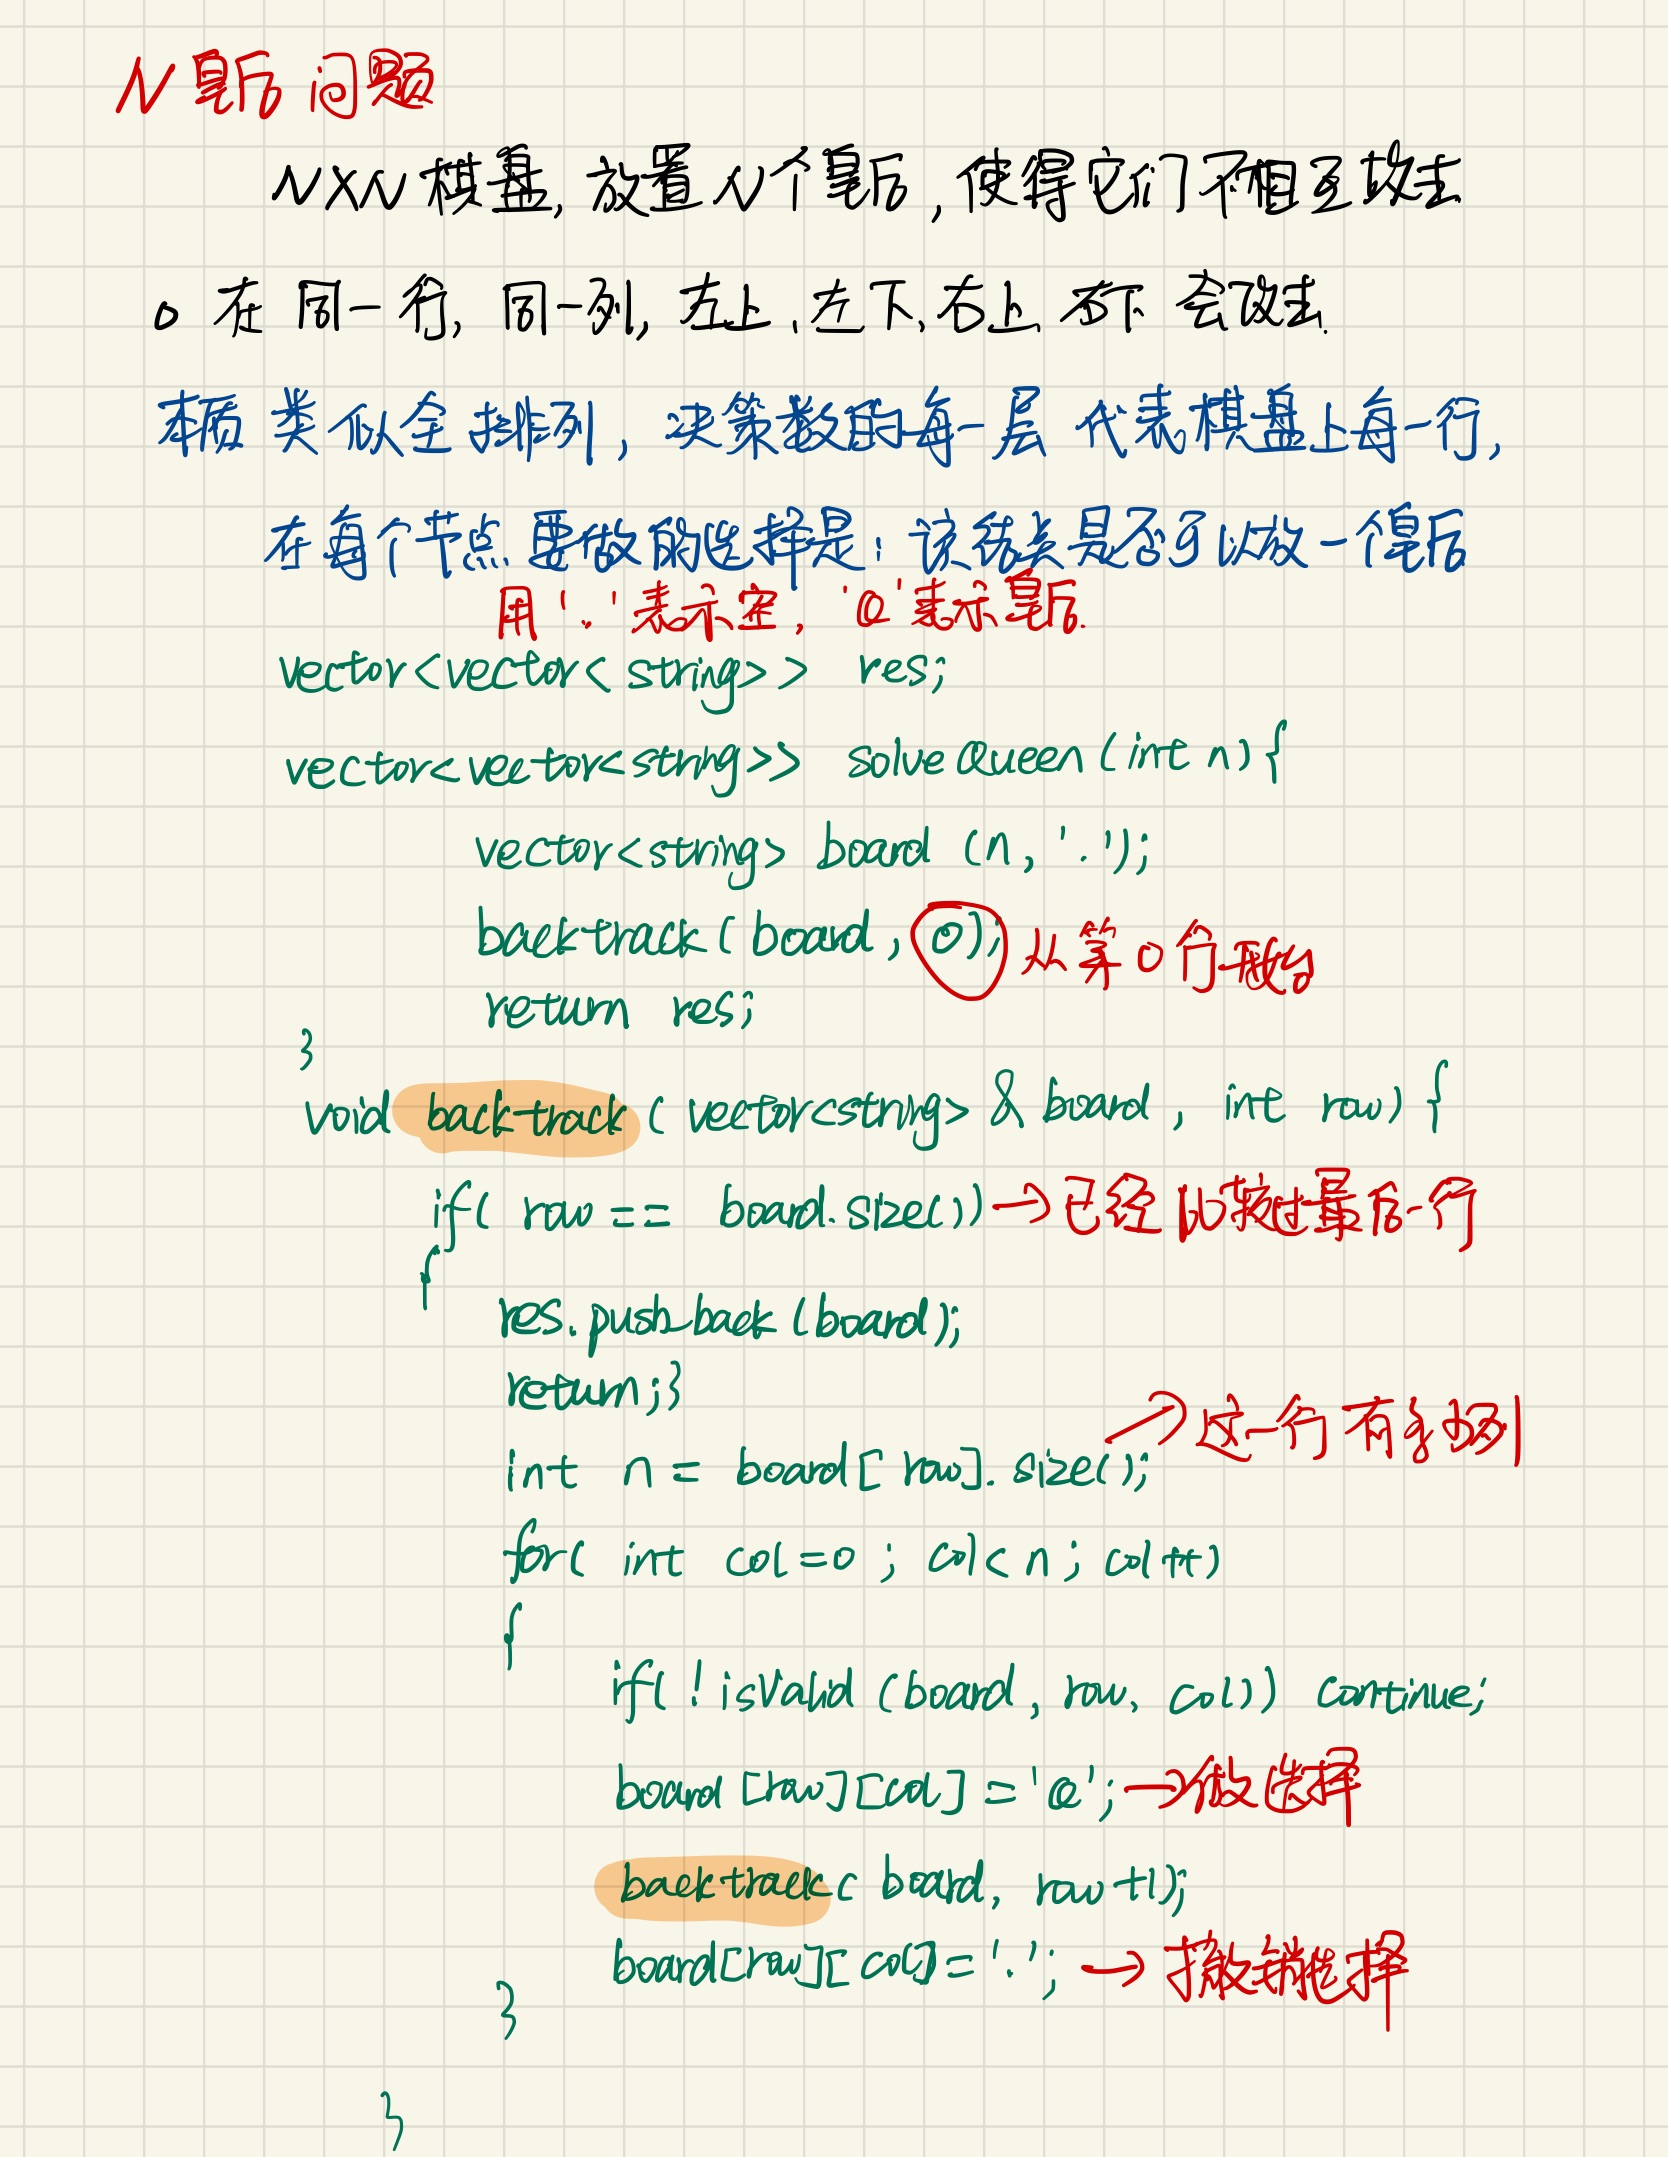 N皇后问题
N×N棋盘,放置N个皇后,使得它们不相互攻击
o 在同一行,同一列,左上、左下、右上、右下会攻击.
本质类似全排列,决策数的每一层代表棋盘上每一行,
在每个节点要做的选择是:该结点是否可以放一个皇后
用'.'表示空,'Q'表示皇后.
vector<vector<string>> res;
vector<vector<string>> solveQueen(int n){
vector<string> board (n, '.');
backtrack(board, 0); 从第0行开始
return res;
}
void backtrack(vector<string> & board, int row) {
if( row == board.size()) → 已经比较过最后一行
{
res.push_back(board);
return;}
→ 这一行有多少列
int n = board[row].size();
for( int col=0 ; col<n ; col++)
{
if(!isValid (board, row, col)) continue;
board[row][col]='Q'; → 做选择
backtrack( board, row+1);
board[row][col]='.'; → 撤销选择
}
}